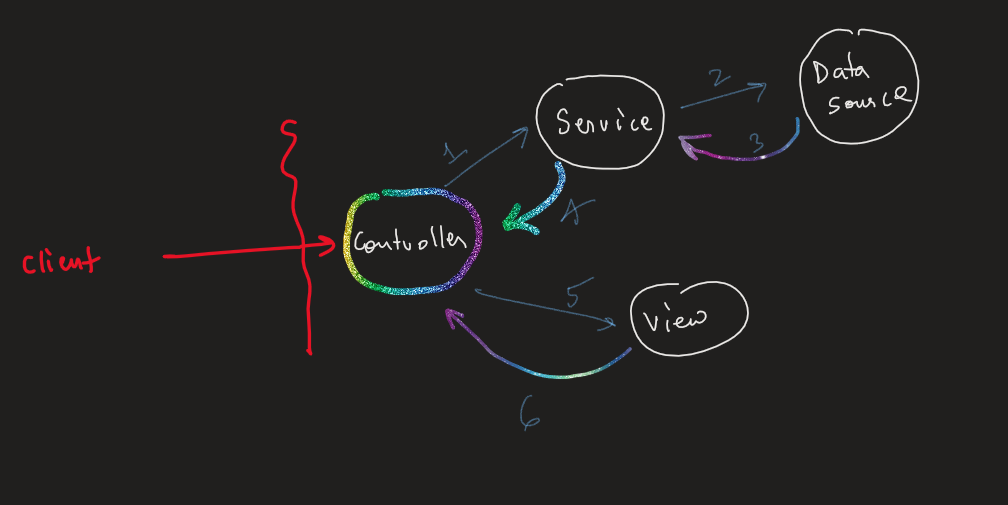 client
Controller
1
Service
2
Data
source
3
4
5
View
6